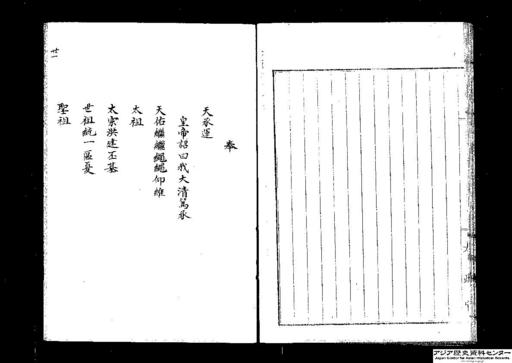 奉
天承運
皇帝詔曰我大清篤承
天佑繼繼繩繩仰維
太祖
太宗洪建丕基
世祖統一區夏
聖祖
廿一
アジア歴史資料センター
Japan Center for Asian Historical Records